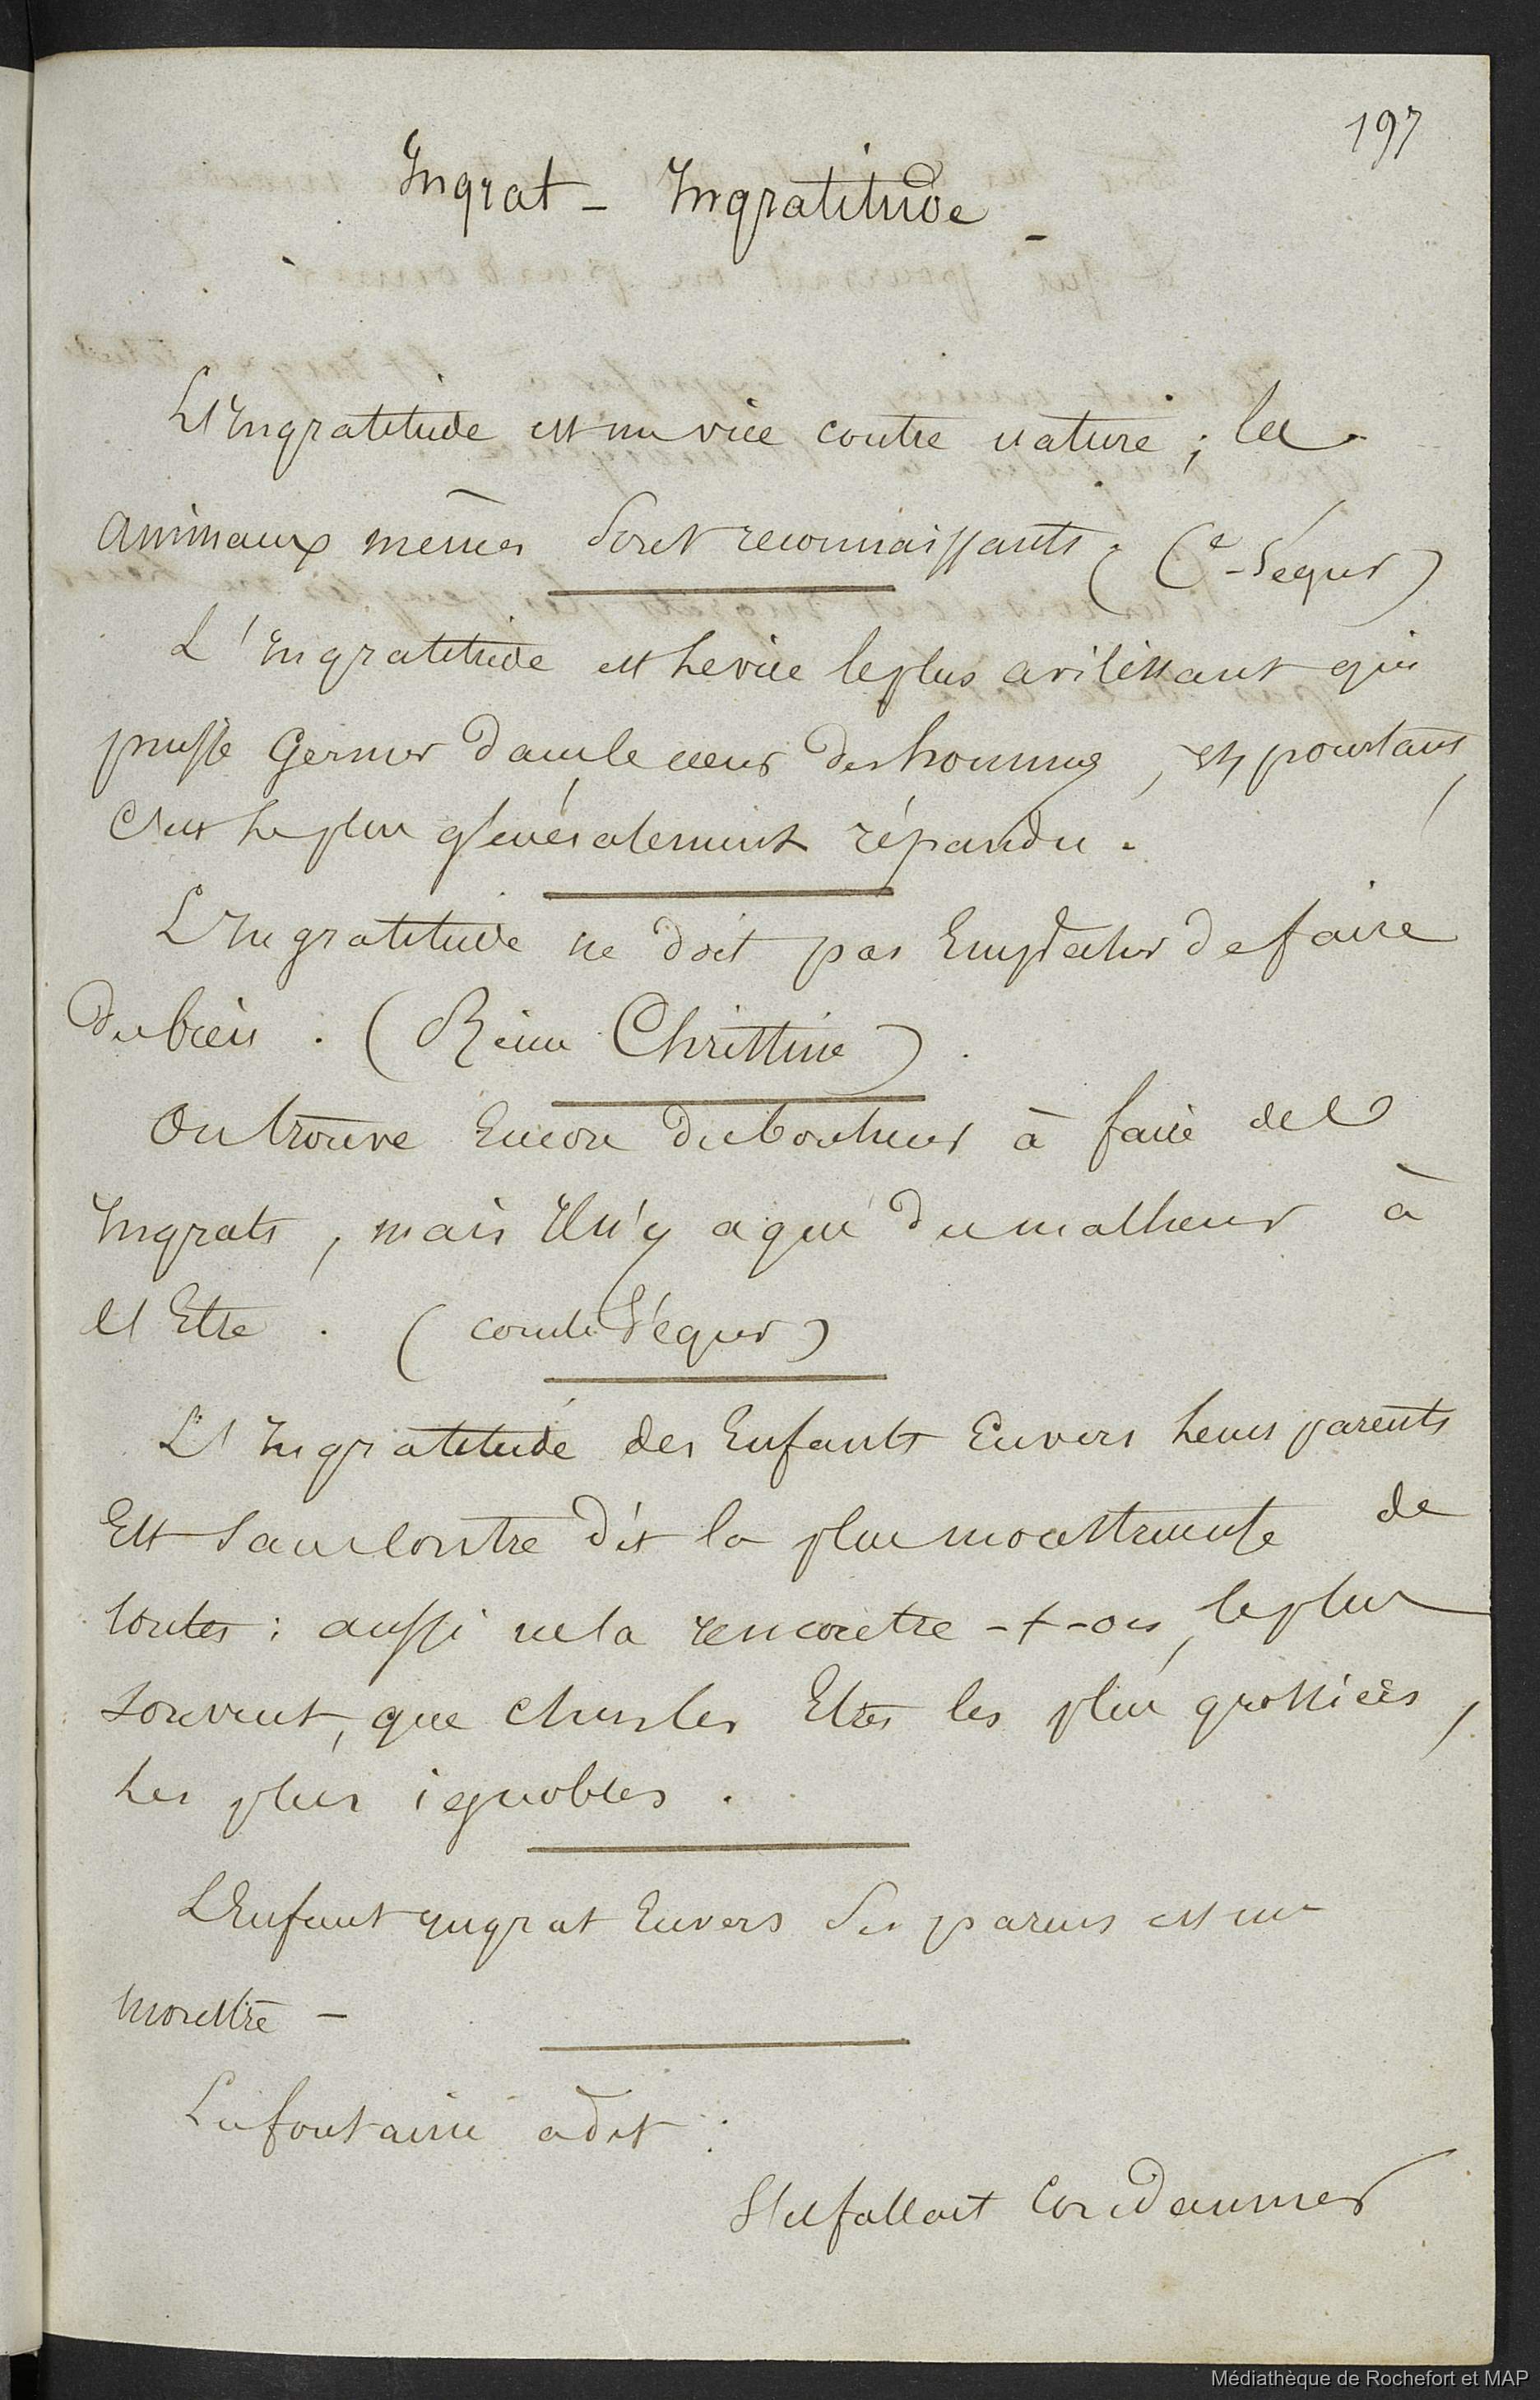 197
Ingrat - Ingratitude -
L'Ingratitude est un vice contre nature ; les
animaux mêmes sont reconnaissants. (Cte Ségur)
L'Ingratitude est le vice le plus avilissant qui
puisse Germer dans le cœur des hommes, et, pourtant,
c'est le plus généralement répandu.
L'Ingratitude ne doit pas Empêcher de faire
du bien. (Reine Christine).
On trouve Encore du bonheur à faire des
Ingrats, mais Il n'y a que du malheur à
l'Etre. (comte Ségur)
L'Ingratitude des Enfants Envers leurs parents
Est sans contre dit la plus monstrueuse de
toutes : aussi ne la rencontre-t-on, le plus
souvent, que chez les Etres les plus grossiers,
les plus ignobles.
L'Enfant Ingrat Envers ses parens est un
monstre -
Lafontaine a dit :
S'il fallait Condamner
Médiathèque de Rochefort et MAP